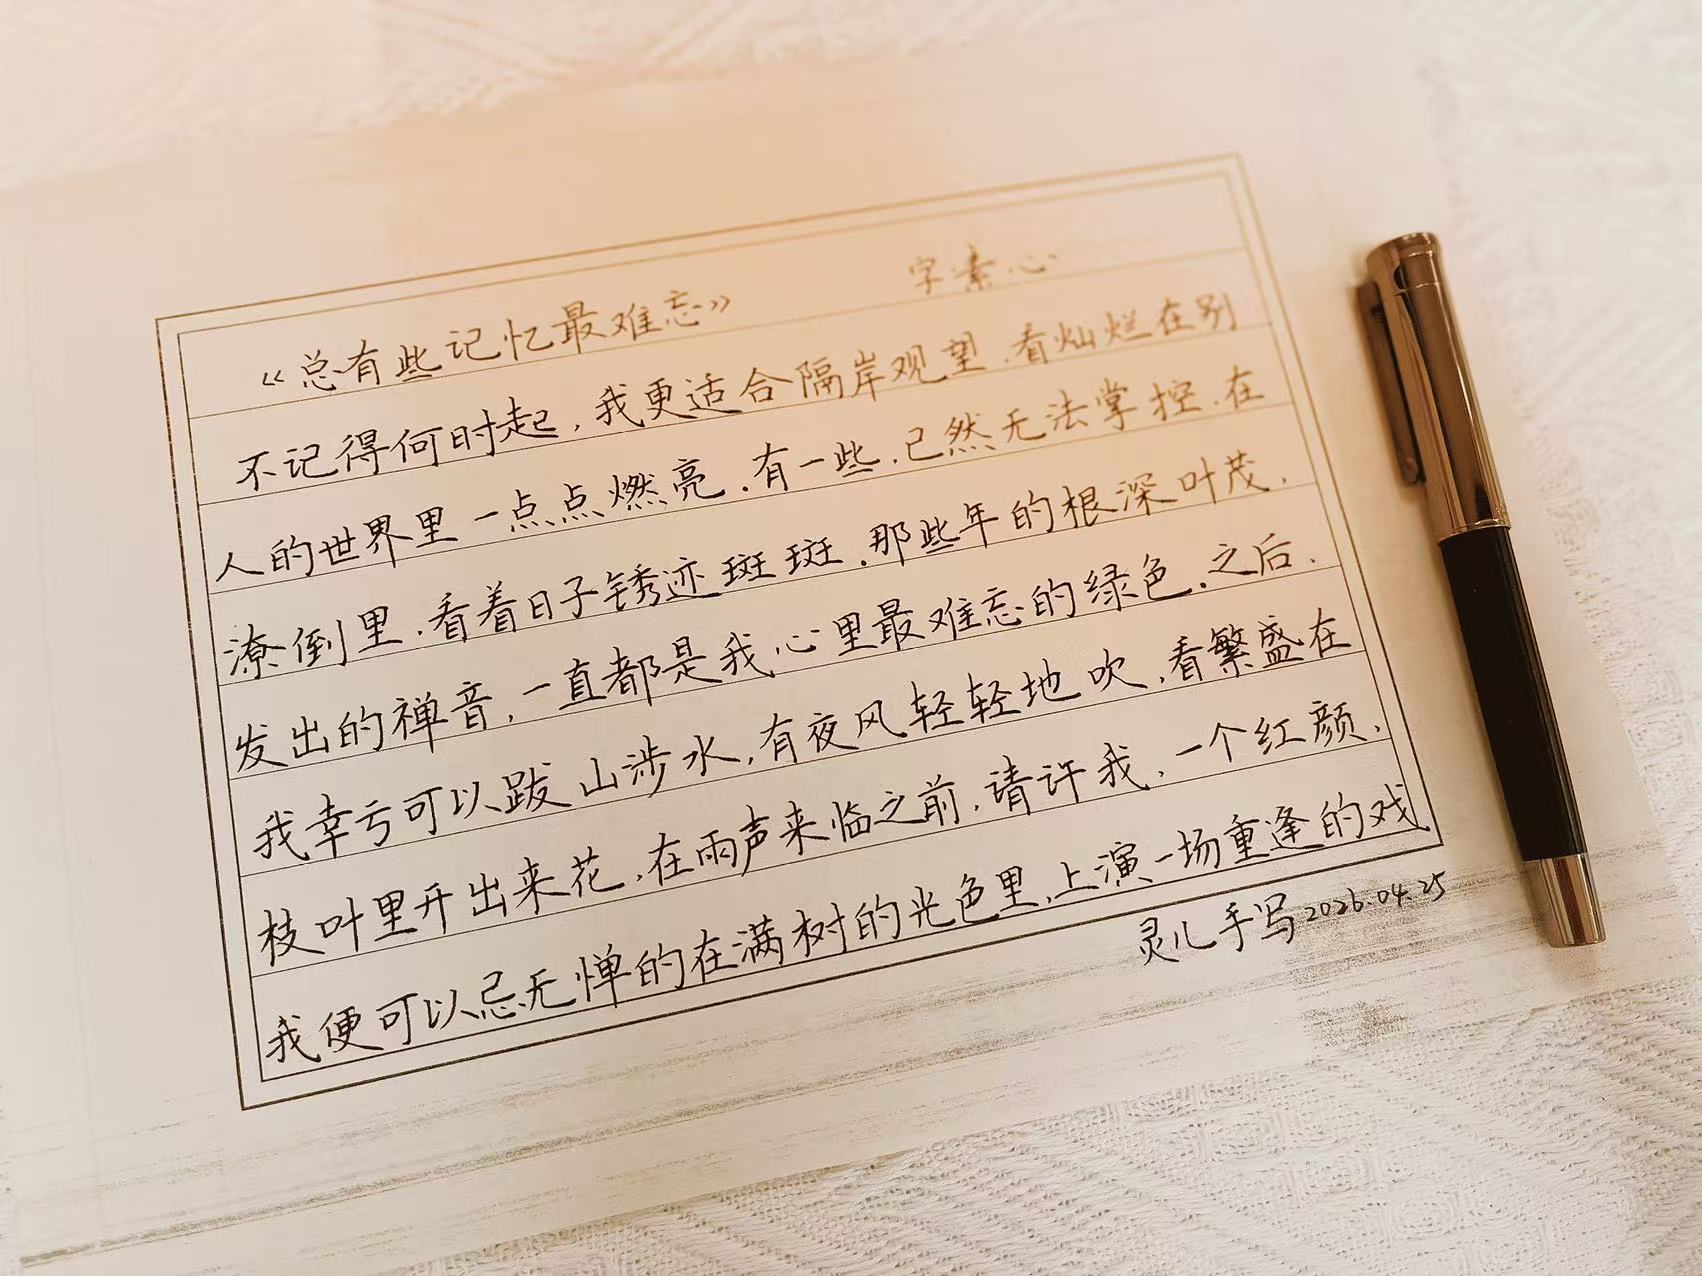 《总有些记忆最难忘》 字素心
不记得何时起,我更适合隔岸观望.看灿烂在别
人的世界里一点点燃亮.有一些.已然无法掌控.在
潦倒里.看着日子锈迹斑斑.那些年的根深叶茂.
发出的禅音,一直都是我心里最难忘的绿色.之后.
我幸亏可以跋山涉水,有夜风轻轻地吹,看繁盛在
枝叶里开出来花,在雨声来临之前,请许我,一个红颜.
我便可以忌无惮的在满树的光色里,上演一场重逢的戏
灵儿手写2026.04.25